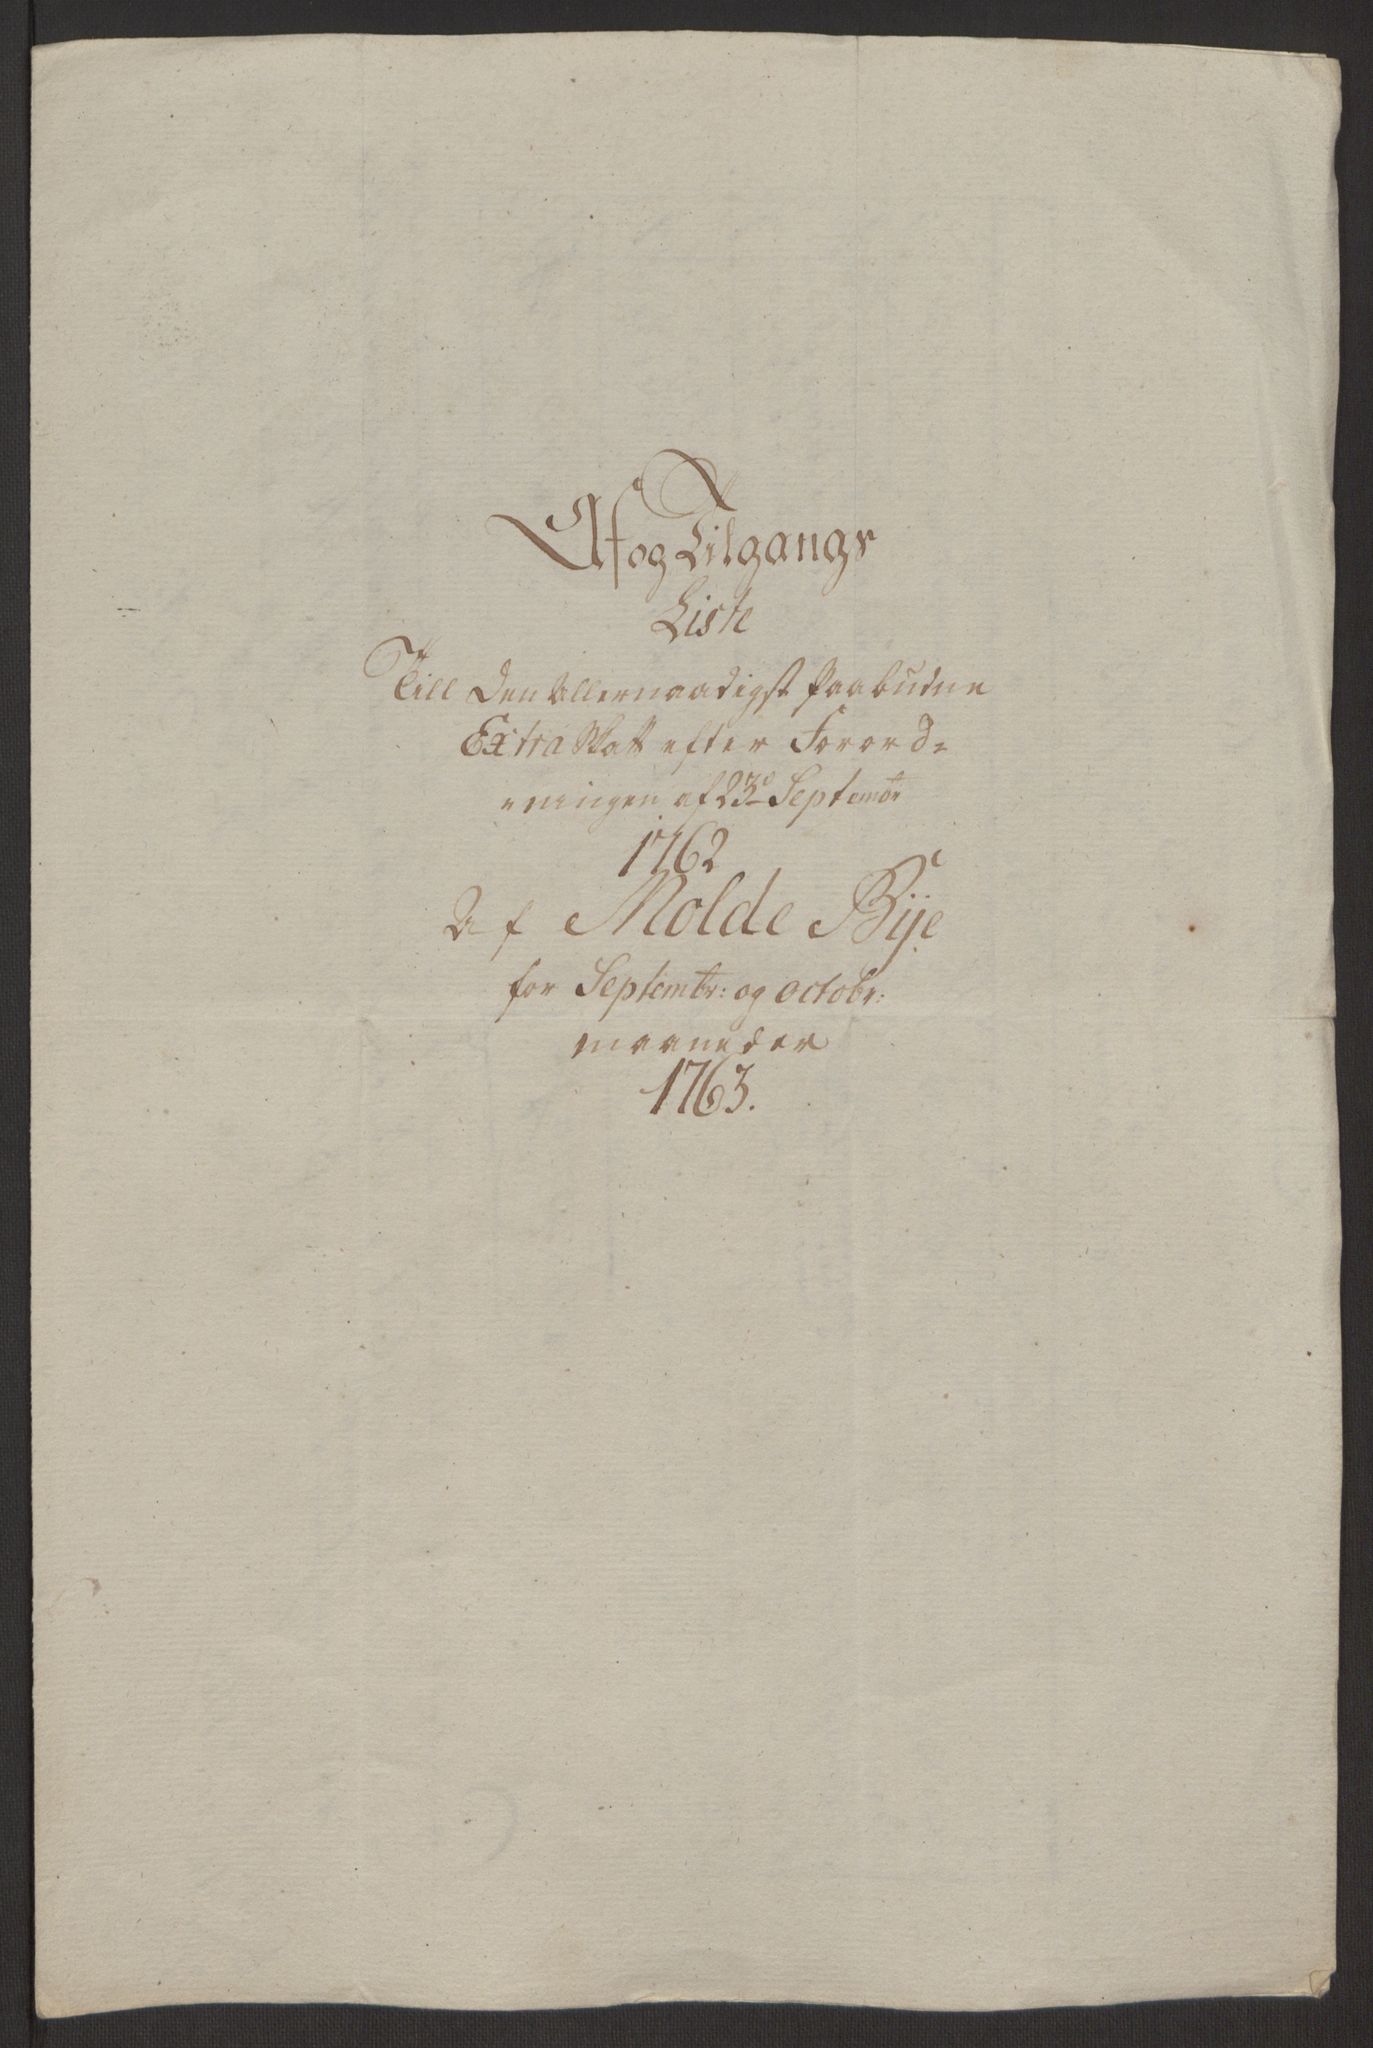 Af og Tilgangs
Liste
Till Den Allernaadigst Paabudne
Extra Skatt efter Forord=
=ningen af 23de Septembr
1762
Af Molde Bÿe
for Septembr: og Octobr:
maaneder
1763.